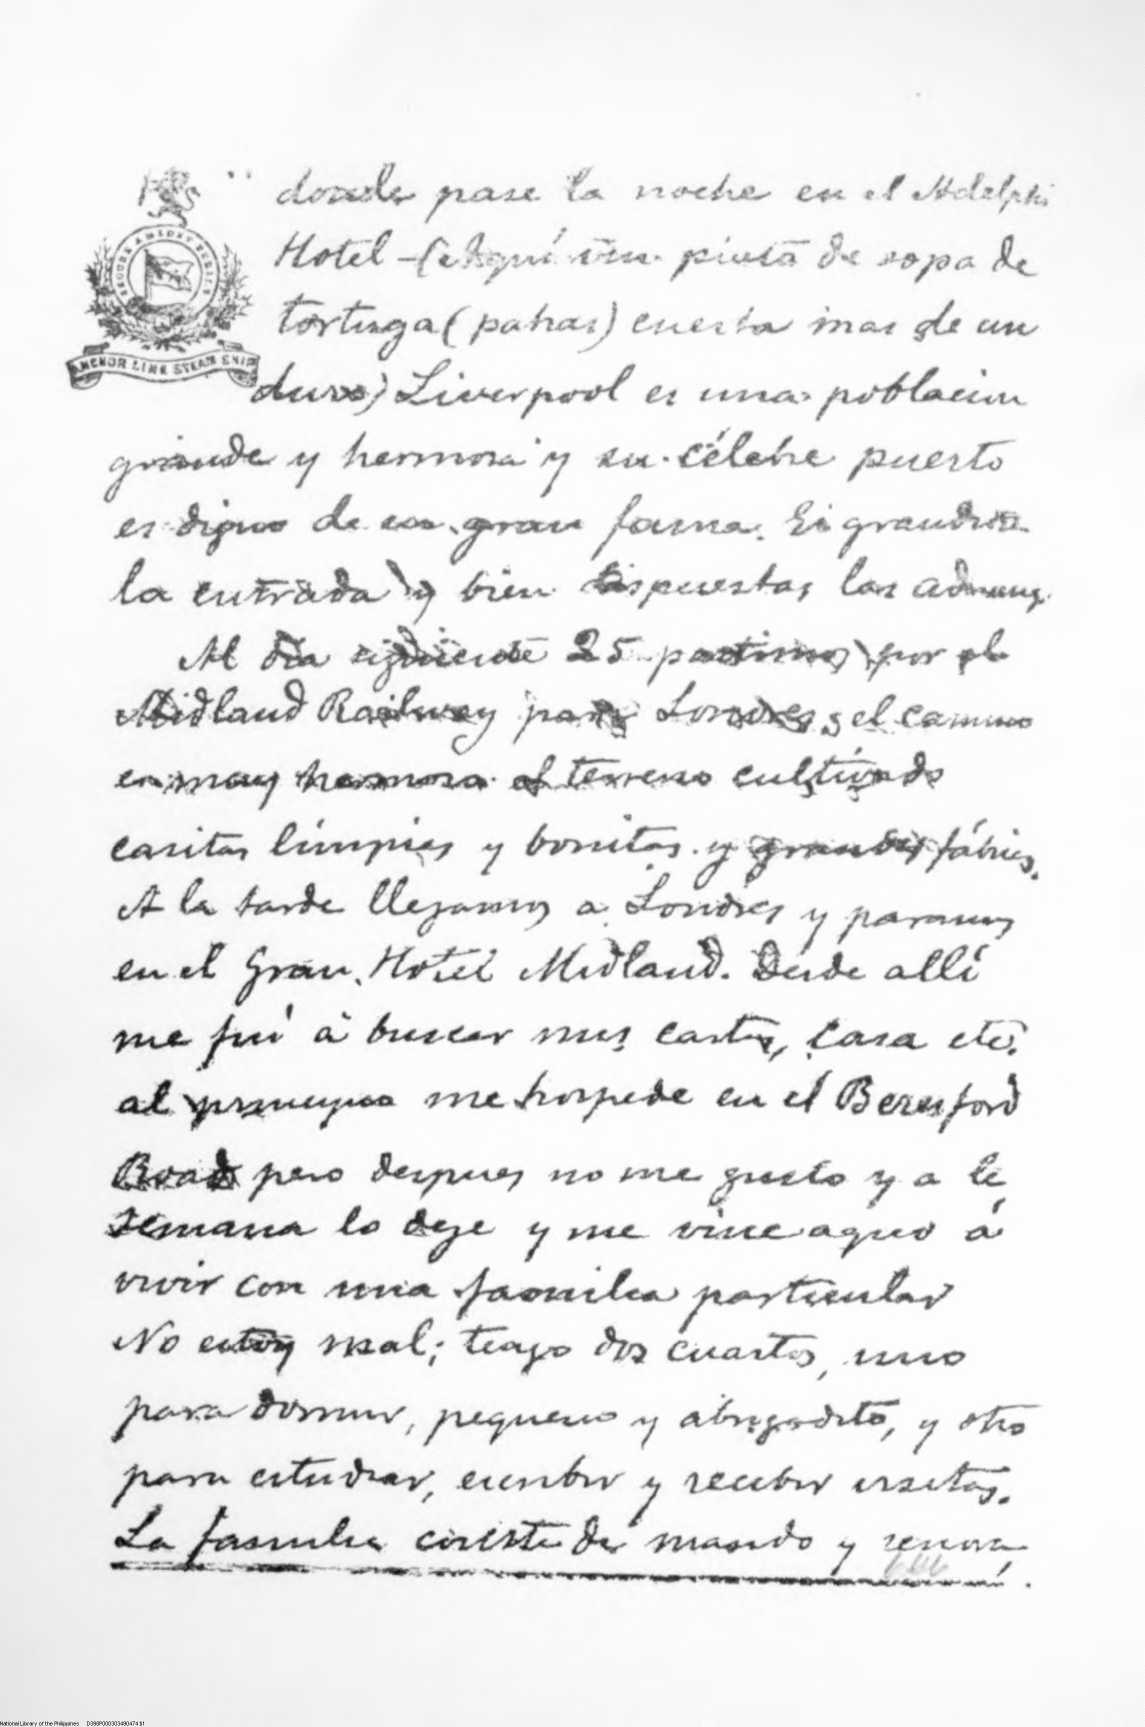 donde pase la noche en el Adelphi
Hotel - (Aquí un pinta de sopa de
tortuga (pahas) cuesta mas de un
duro) Liverpool es una poblacion
grande y hermosa y su célebre puerto
es digno de su gran fama. Es grandiosa
la entrada y bien dispuestas las aduanas.
Al dia siguiente 25 partimos por el
Midland Railway para Londres, el camino
es muy hermoso el terreno cultivado
casitas limpias y bonitas y grandes fábricas.
A la tarde llegamos a Londres y paramos
en el Gran Hotel Midland. Desde allí
me fuí á buscar mis cartas, casa etc.
al principio me hospede en el Beresford
Road pero despues no me gusto y a la
semana lo deje y me vine aqui á
vivir con una familia particular
No estoy mal; tengo dos cuartos, uno
para dormir, pequeno y abrigadito, y otro
para estudiar, escribir y recibir visitas.
La familia consiste de marido y senora,
ANCHOR LINE STEAM SHIP
National Library of the Philippines